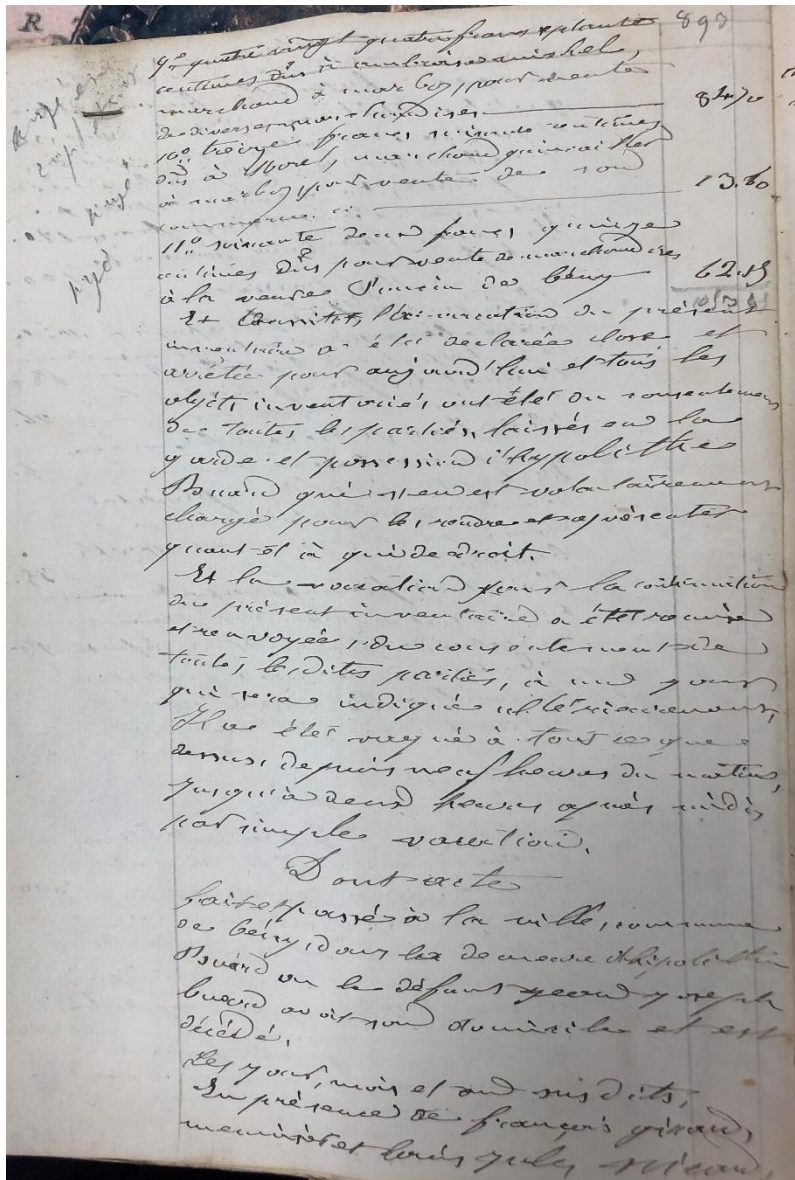 893
9º quatre vingt quatre francs soixante
centimes dûs à ambroise michel,
marchand à marboz, pour vente
de diverses marchandises 84.70
10º treize francs soixante centimes
dûs à Morel, marchand quincailler
à marboz, pour vente de son
commerce. ci. 13.60
11º soixante deux francs quinze
centimes dûs pour vente de marchandises
à la veuve de bény 62.15
Et aussitôt, la du présent
inventaire a été déclarée close et
arrêtée pour aujourd'hui et tous les
objets inventoriés ont été du consentement
de toutes les parties, laissés en la
garde et possession d'hypolithe
Buard qui s'en est volontairement
chargé pour les rendre et représenter
quant et à qui de droit.
Et la vacation pour la continuation
du présent inventaire a été remise
et renvoyée, du consentement de
toutes les dites parties, à un jour
qui sera indiqué ultérieurement,
Il a été vaqué à tout ce que
dessus, depuis neuf heures du matin,
jusqu'à deux heures après midi,
par simple vacation.
Dont acte
fait et passé à la ville, commune
de bény, dans la demeure d'hipolithe
Buard ou le défunt joseph
buard avait son domicile et est
décédé.
Les jour, mois et an susdits,
En présence de françois giraud,
menuisier et louis jules